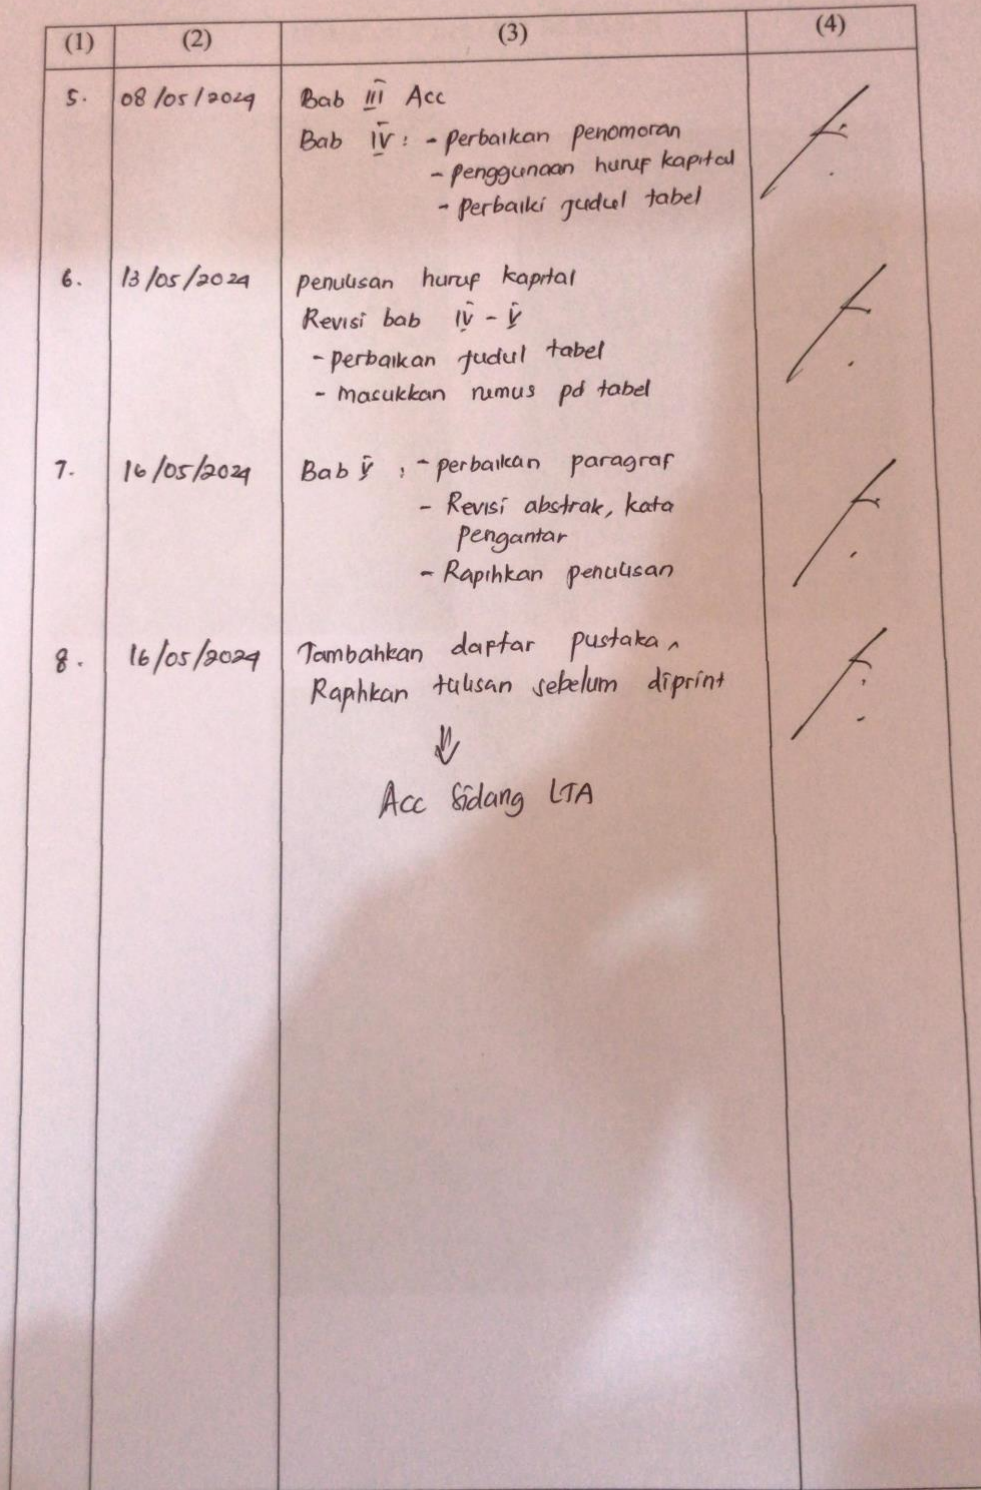 (1) (2) (3) (4)
5. 08/05/2024 Bab III Acc
Bab IV : - Perbaikan penomoran
- penggunaan huruf kapital
- Perbaiki judul tabel
6. 13/05/2024 penulisan huruf kapital
Revisi bab IV - V
- perbaikan judul tabel
- masukkan rumus pd tabel
7. 16/05/2024 Bab V : - perbaikan paragraf
- Revisi abstrak, kata
pengantar
- Rapihkan penulisan
8. 16/05/2024 Tambahkan daftar pustaka,
Raphkan tulisan sebelum diprint
Acc Sidang LTA